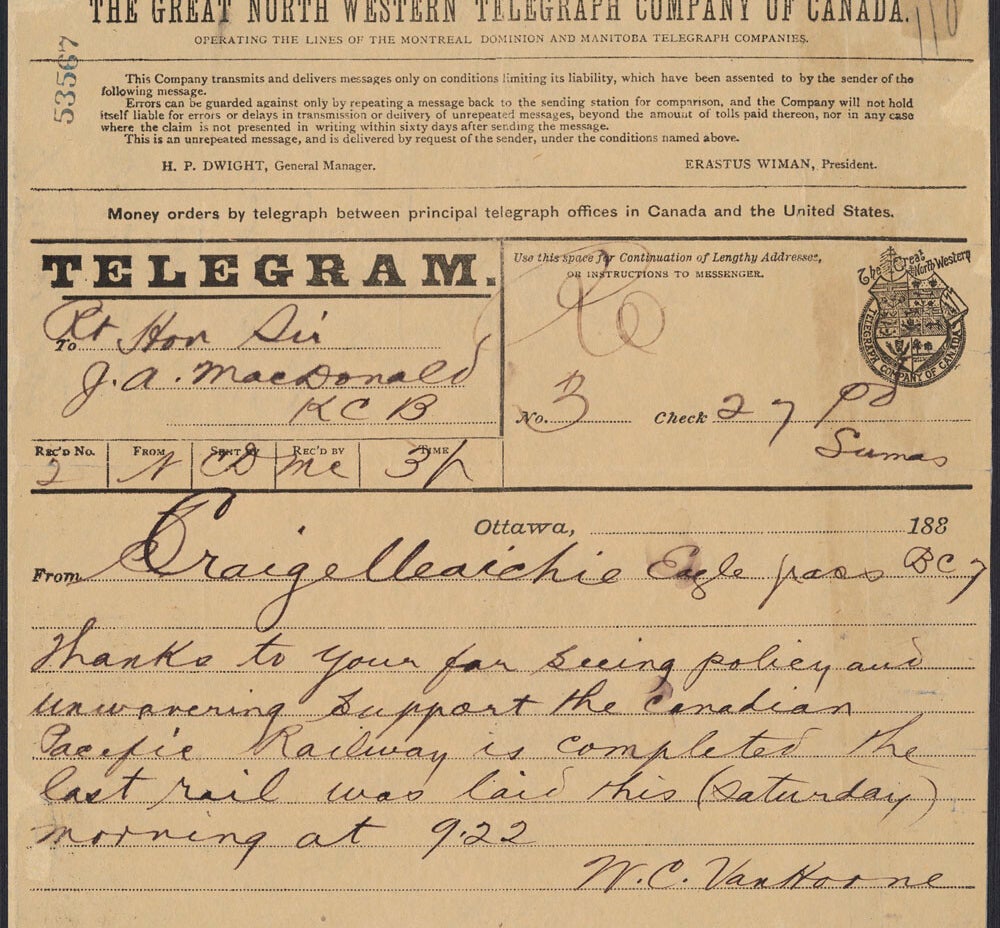 THE GREAT NORTH WESTERN TELEGRAPH COMPANY OF CANADA.
OPERATING THE LINES OF THE MONTREAL DOMINION AND MANITOBA TELEGRAPH COMPANIES.
110
53567
This Company transmits and delivers messages only on conditions limiting its liability, which have been assented to by the sender of the
following message.
Errors can be guarded against only by repeating a message back to the sending station for comparison, and the Company will not hold
itself liable for errors or delays in transmission or delivery of unrepeated messages, beyond the amount of tolls paid thereon, nor in any case
where the claim is not presented in writing within sixty days after sending the message.
This is an unrepeated message, and is delivered by request of the sender, under the conditions named above.
H. P. DWIGHT, General Manager. ERASTUS WIMAN, President.
Money orders by telegraph between principal telegraph offices in Canada and the United States.
TELEGRAM.
Use this space for Continuation of Lengthy Addresses,
OR INSTRUCTIONS TO MESSENGER.
The Great North Western
TELEGRAPH COMPANY OF CANADA
To Rt Hon Sir
J. A. MacDonald
K C B
No. 3 Check 27 Pd
Sumas
REC'D No. FROM SENT BY REC'D BY TIME
2 N CD Mc 3p
Ottawa, 188
From Craigelleaichie Eagle pass BC 7
Thanks to your far seeing policy and
unwavering support the Canadian
Pacific Railway is completed the
last rail was laid this (Saturday)
morning at 9.22
W. C. VanHorne